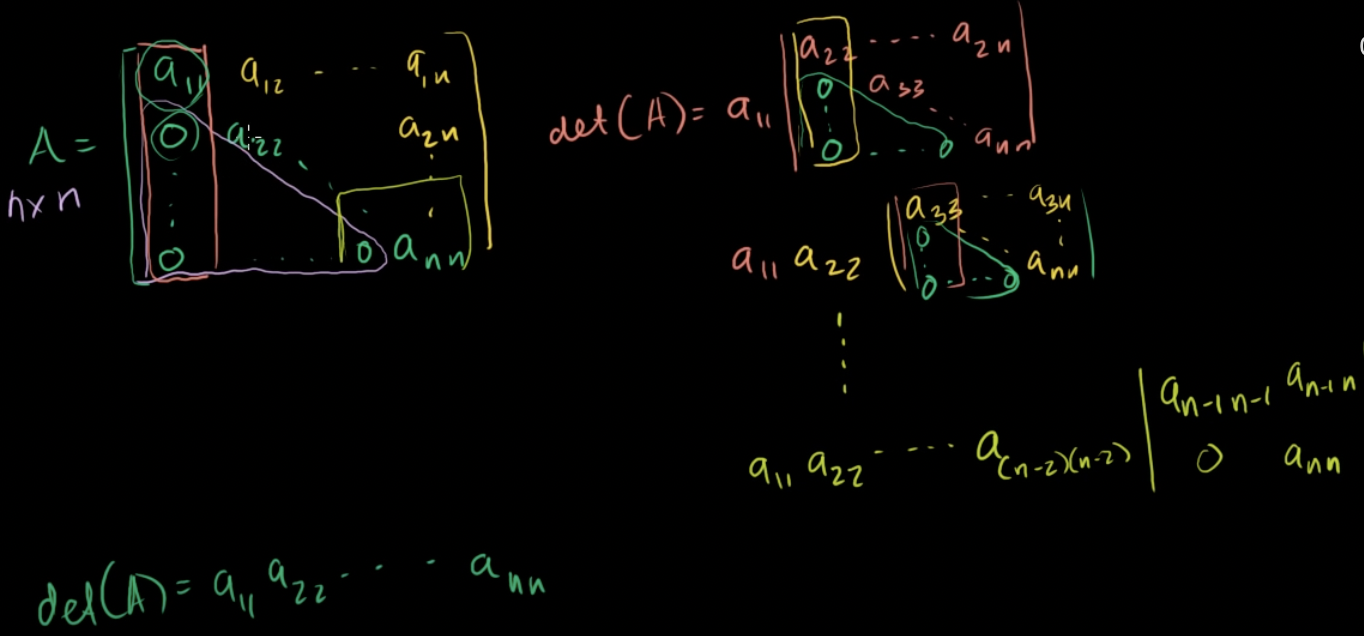 A = [ a11 a12 - - - - a1n
0 a22 a2n
n×n
0 . . . . . 0 ann ]
det(A) = a11 | a22 - - - - a2n
0 a33
0 - - - - 0 ann |
a11 a22 | a33 - - - a3n
0
0 - - - 0 ann |
a11 a22 - - - - - a(n-2)(n-2) | an-1n-1 an-1n
0 ann
det(A) = a11 a22 - - - - ann